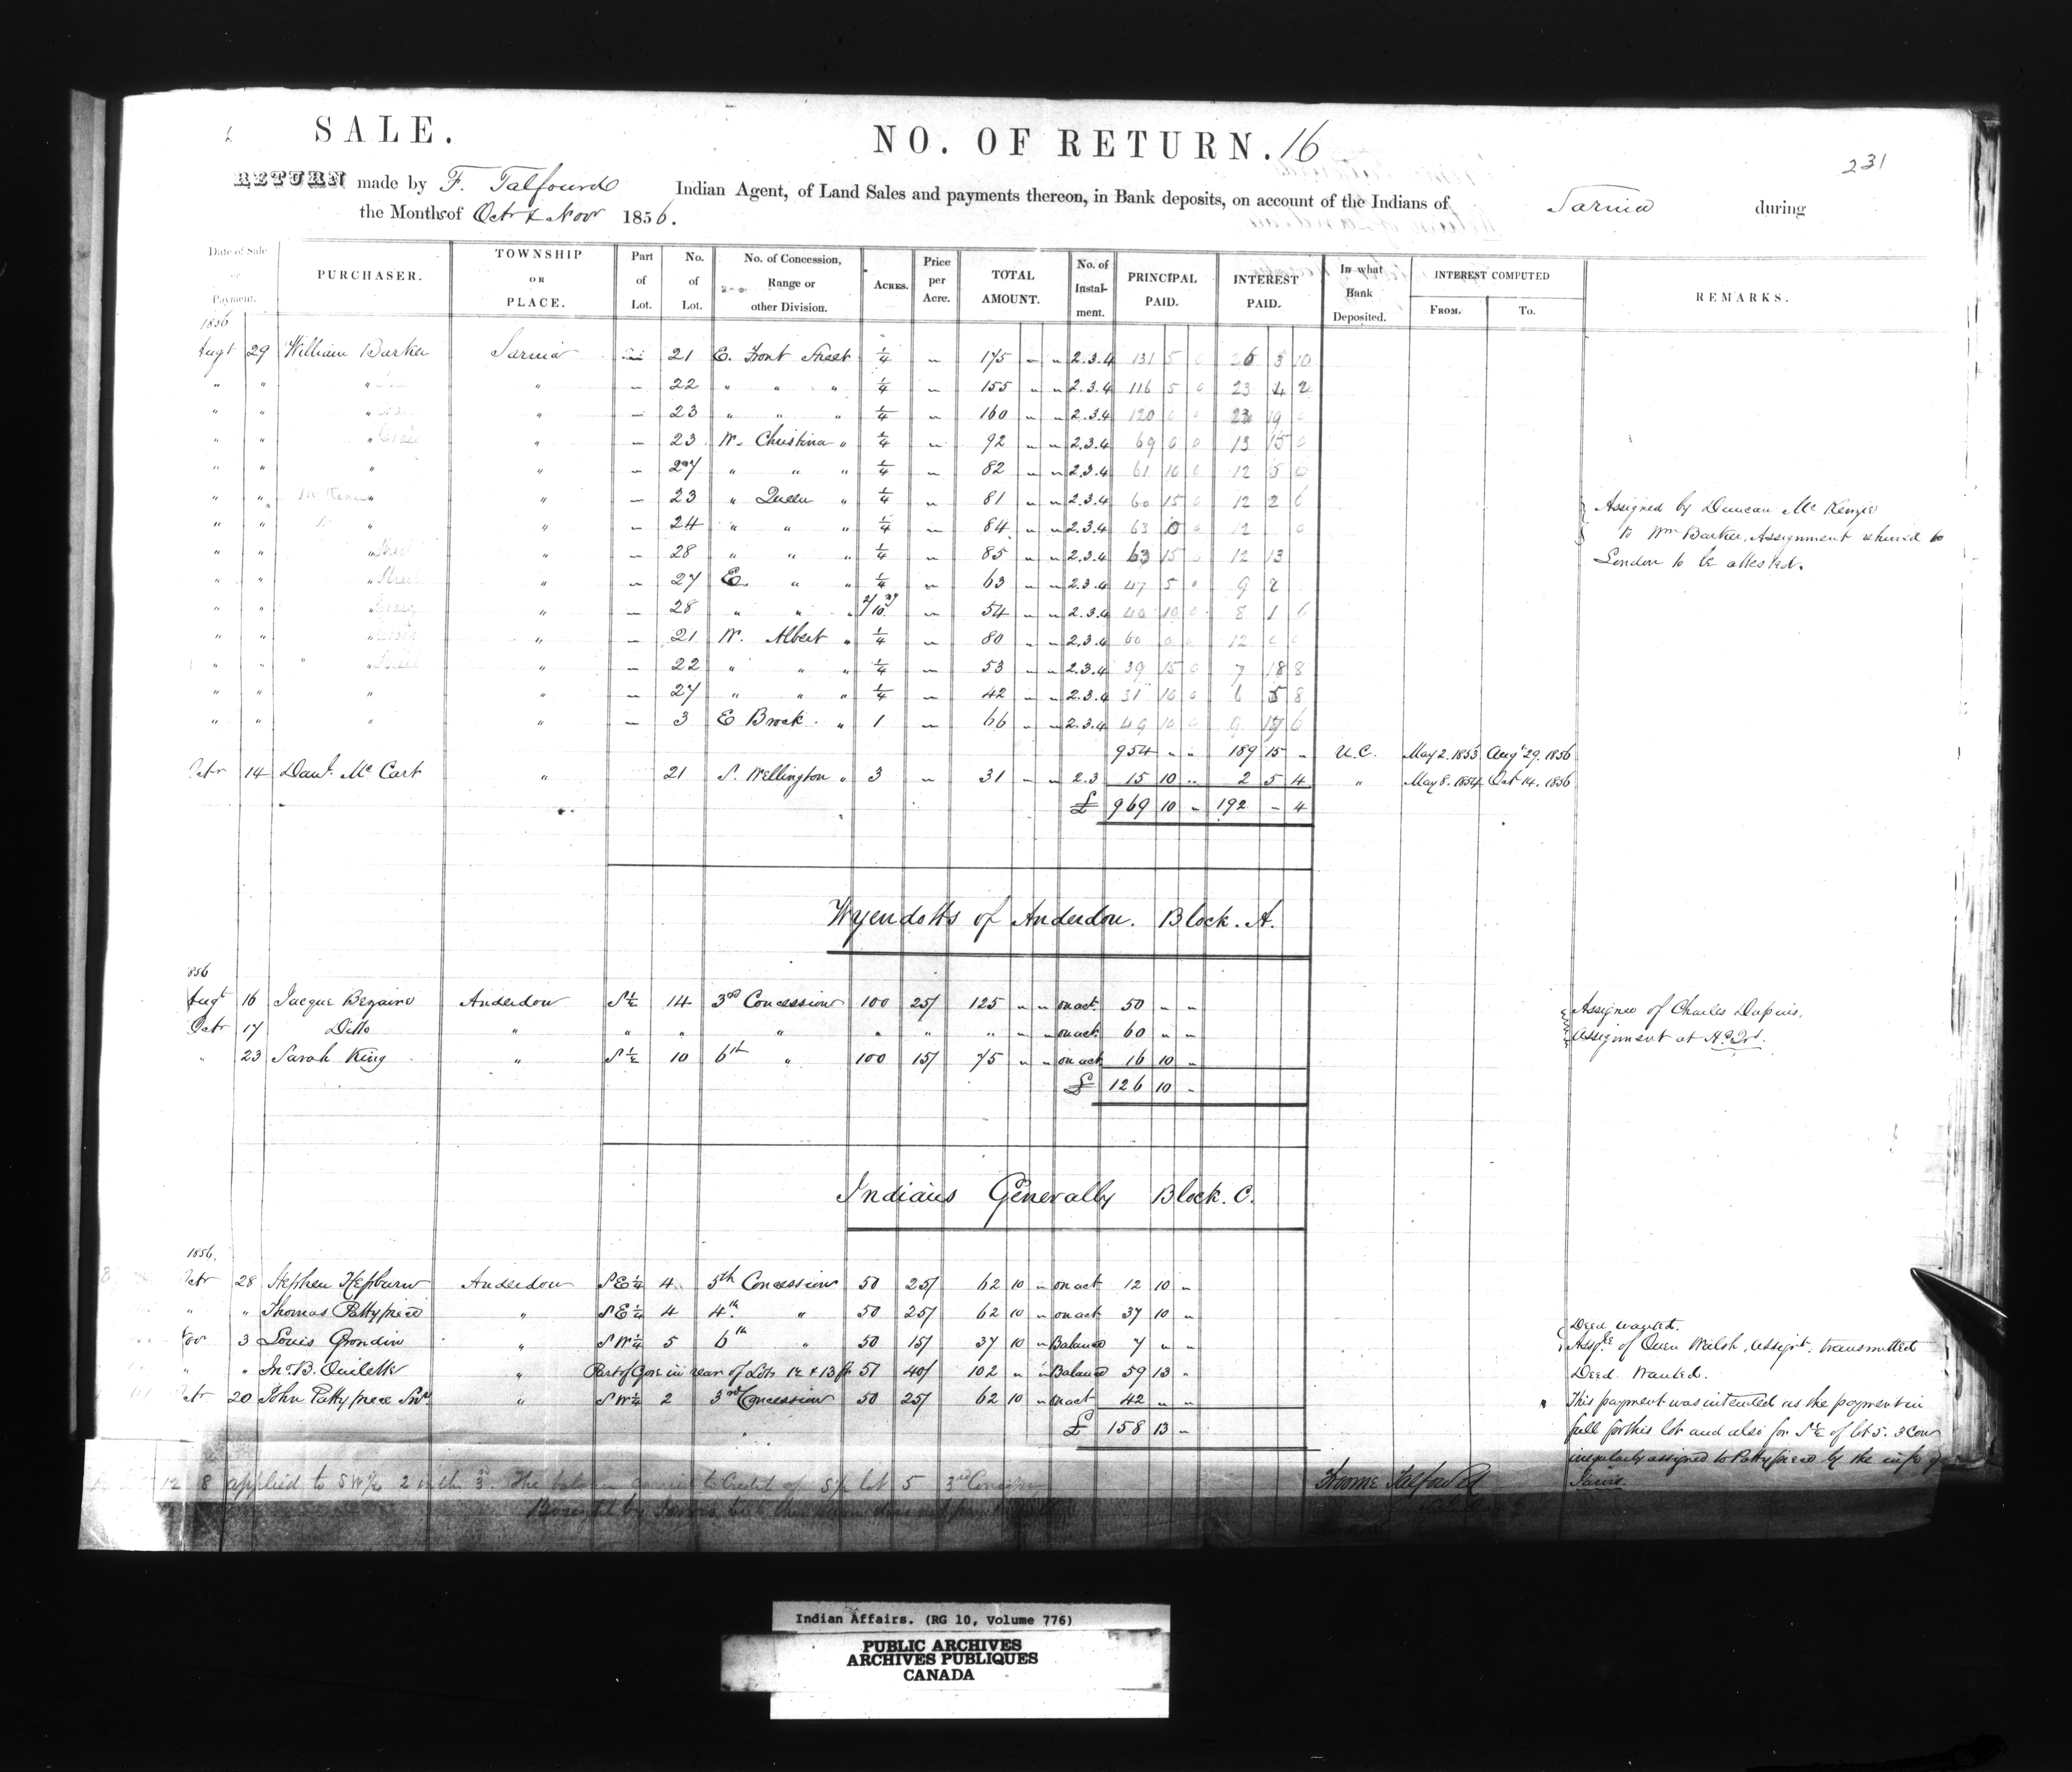 SALE.
NO. OF RETURN. 16
231
RETURN made by F. Talfourd Indian Agent, of Land Sales and payments thereon, in Bank deposits, on account of the Indians of Sarnia during
the Months of Octr & Novr 1856.
Date of Sale or Payment. PURCHASER. TOWNSHIP OR PLACE. Part of Lot. No. of Lot. No. of Concession, Range or other Division. ACRES. Price per Acre. TOTAL AMOUNT. No. of Instalment. PRINCIPAL PAID. INTEREST PAID. In what Bank Deposited. INTEREST COMPUTED FROM. To. REMARKS.
1856
Augt 29 William Barker Sarnia — 21 E. Front Street 1/4 — 175 – – 2.3.4 131 5 0 26 3 10
" " " " — 22 " " " 1/4 — 155 – – 2.3.4 116 5 0 23 4 2
" " " " — 23 " " " 1/4 — 160 – – 2.3.4 120 0 0 23 19 0
" " " " — 23 W. Christina " 1/4 — 92 – – 2.3.4 69 0 0 13 15 0
" " " " — 27 " " " 1/4 — 82 – – 2.3.4 61 10 0 12 5 0
" " " " — 23 " Queen " 1/4 — 81 – – 2.3.4 60 15 0 12 2 6
Assigned by Duncan McKenzie
" " " " — 24 " " " 1/4 — 84 – – 2.3.4 63 0 0 12 0
to Wm Barker, Assignment returned to
" " " " — 28 " " " 1/4 — 85 – – 2.3.4 63 15 0 12 13
London to be attested.
" " " " — 27 E. " " 1/4 — 63 – – 2.3.4 47 5 0 9 2
" " " " — 28 " " " 2/10 — 54 – – 2.3.4 40 10 0 8 1 6
" " " " — 21 W. Albert " 1/4 — 80 – – 2.3.4 60 0 0 12 0 0
" " " " — 22 " " " 1/4 — 53 – – 2.3.4 39 15 0 7 18 8
" " " " — 27 " " " 1/4 — 42 – – 2.3.4 31 10 0 6 5 8
" " " " — 3 E Brock " 1 — 66 – – 2.3.4 49 10 0 9 17 6
954 – – 189 15 – U.C. May 2. 1853 Augt 29. 1856
Octr 14 Danl. McCart " 21 S. Wellington " 3 — 31 – – 2.3 15 10 – 2 5 4 " May 8. 1854 Oct 14. 1856
£ 969 10 – 192 – 4
Wyendotts of Anderdon. Block. A.
1856
Augt 16 Jacque Bezaire Anderdon S 1/2 14 3rd Concession 100 25/ 125 – – on act. 50 – – Assignee of Charles Dupuis,
Octr 17 Ditto " " " " " " " – – on act. 60 – – Assignment at Hd Qrs.
" 23 Sarah King " S 1/2 10 6th " 100 15/ 75 – – on act 16 10 –
£ 126 10 –
Indians Generally Block. C.
1856.
Octr 28 Stephen Hepburn Anderdon S E 1/4 4 5th Concession 50 25/ 62 10 – on act 12 10 –
" " Thomas Pattypiece " S E 1/4 4 4th " 50 25/ 62 10 – on act 37 10 –
Deed wanted.
Novr 3 Louis Grondin " S W 1/4 5 6th " 50 15/ 37 10 – Balance 7 – – Assge of Owen Walsh, Assigt. transmitted
" " Jno. B. Ouilette " Part of Gore in rear of Lots 12 & 13 51 40/ 102 – – Balance 59 13 – Deed Wanted.
Octr 20 John Pattypiece Snr. " S W 1/4 2 3rd Concession 50 25/ 62 10 – on act 42 – – This payment was intended as the payment in
£ 158 13 – full for this lot and also for S 1/2 of lot 5. 3 Con
irregularly assigned to Pattypiece by the wife of
Jarvis.
12 8 applied to SW 1/4 2 in the 3d. The balance carried to Credit of S 1/2 lot 5 3rd Concession
Froome Talfourd
Bought by Jarvis but
Indian Affairs. (RG 10, Volume 776)
PUBLIC ARCHIVES
ARCHIVES PUBLIQUES
CANADA